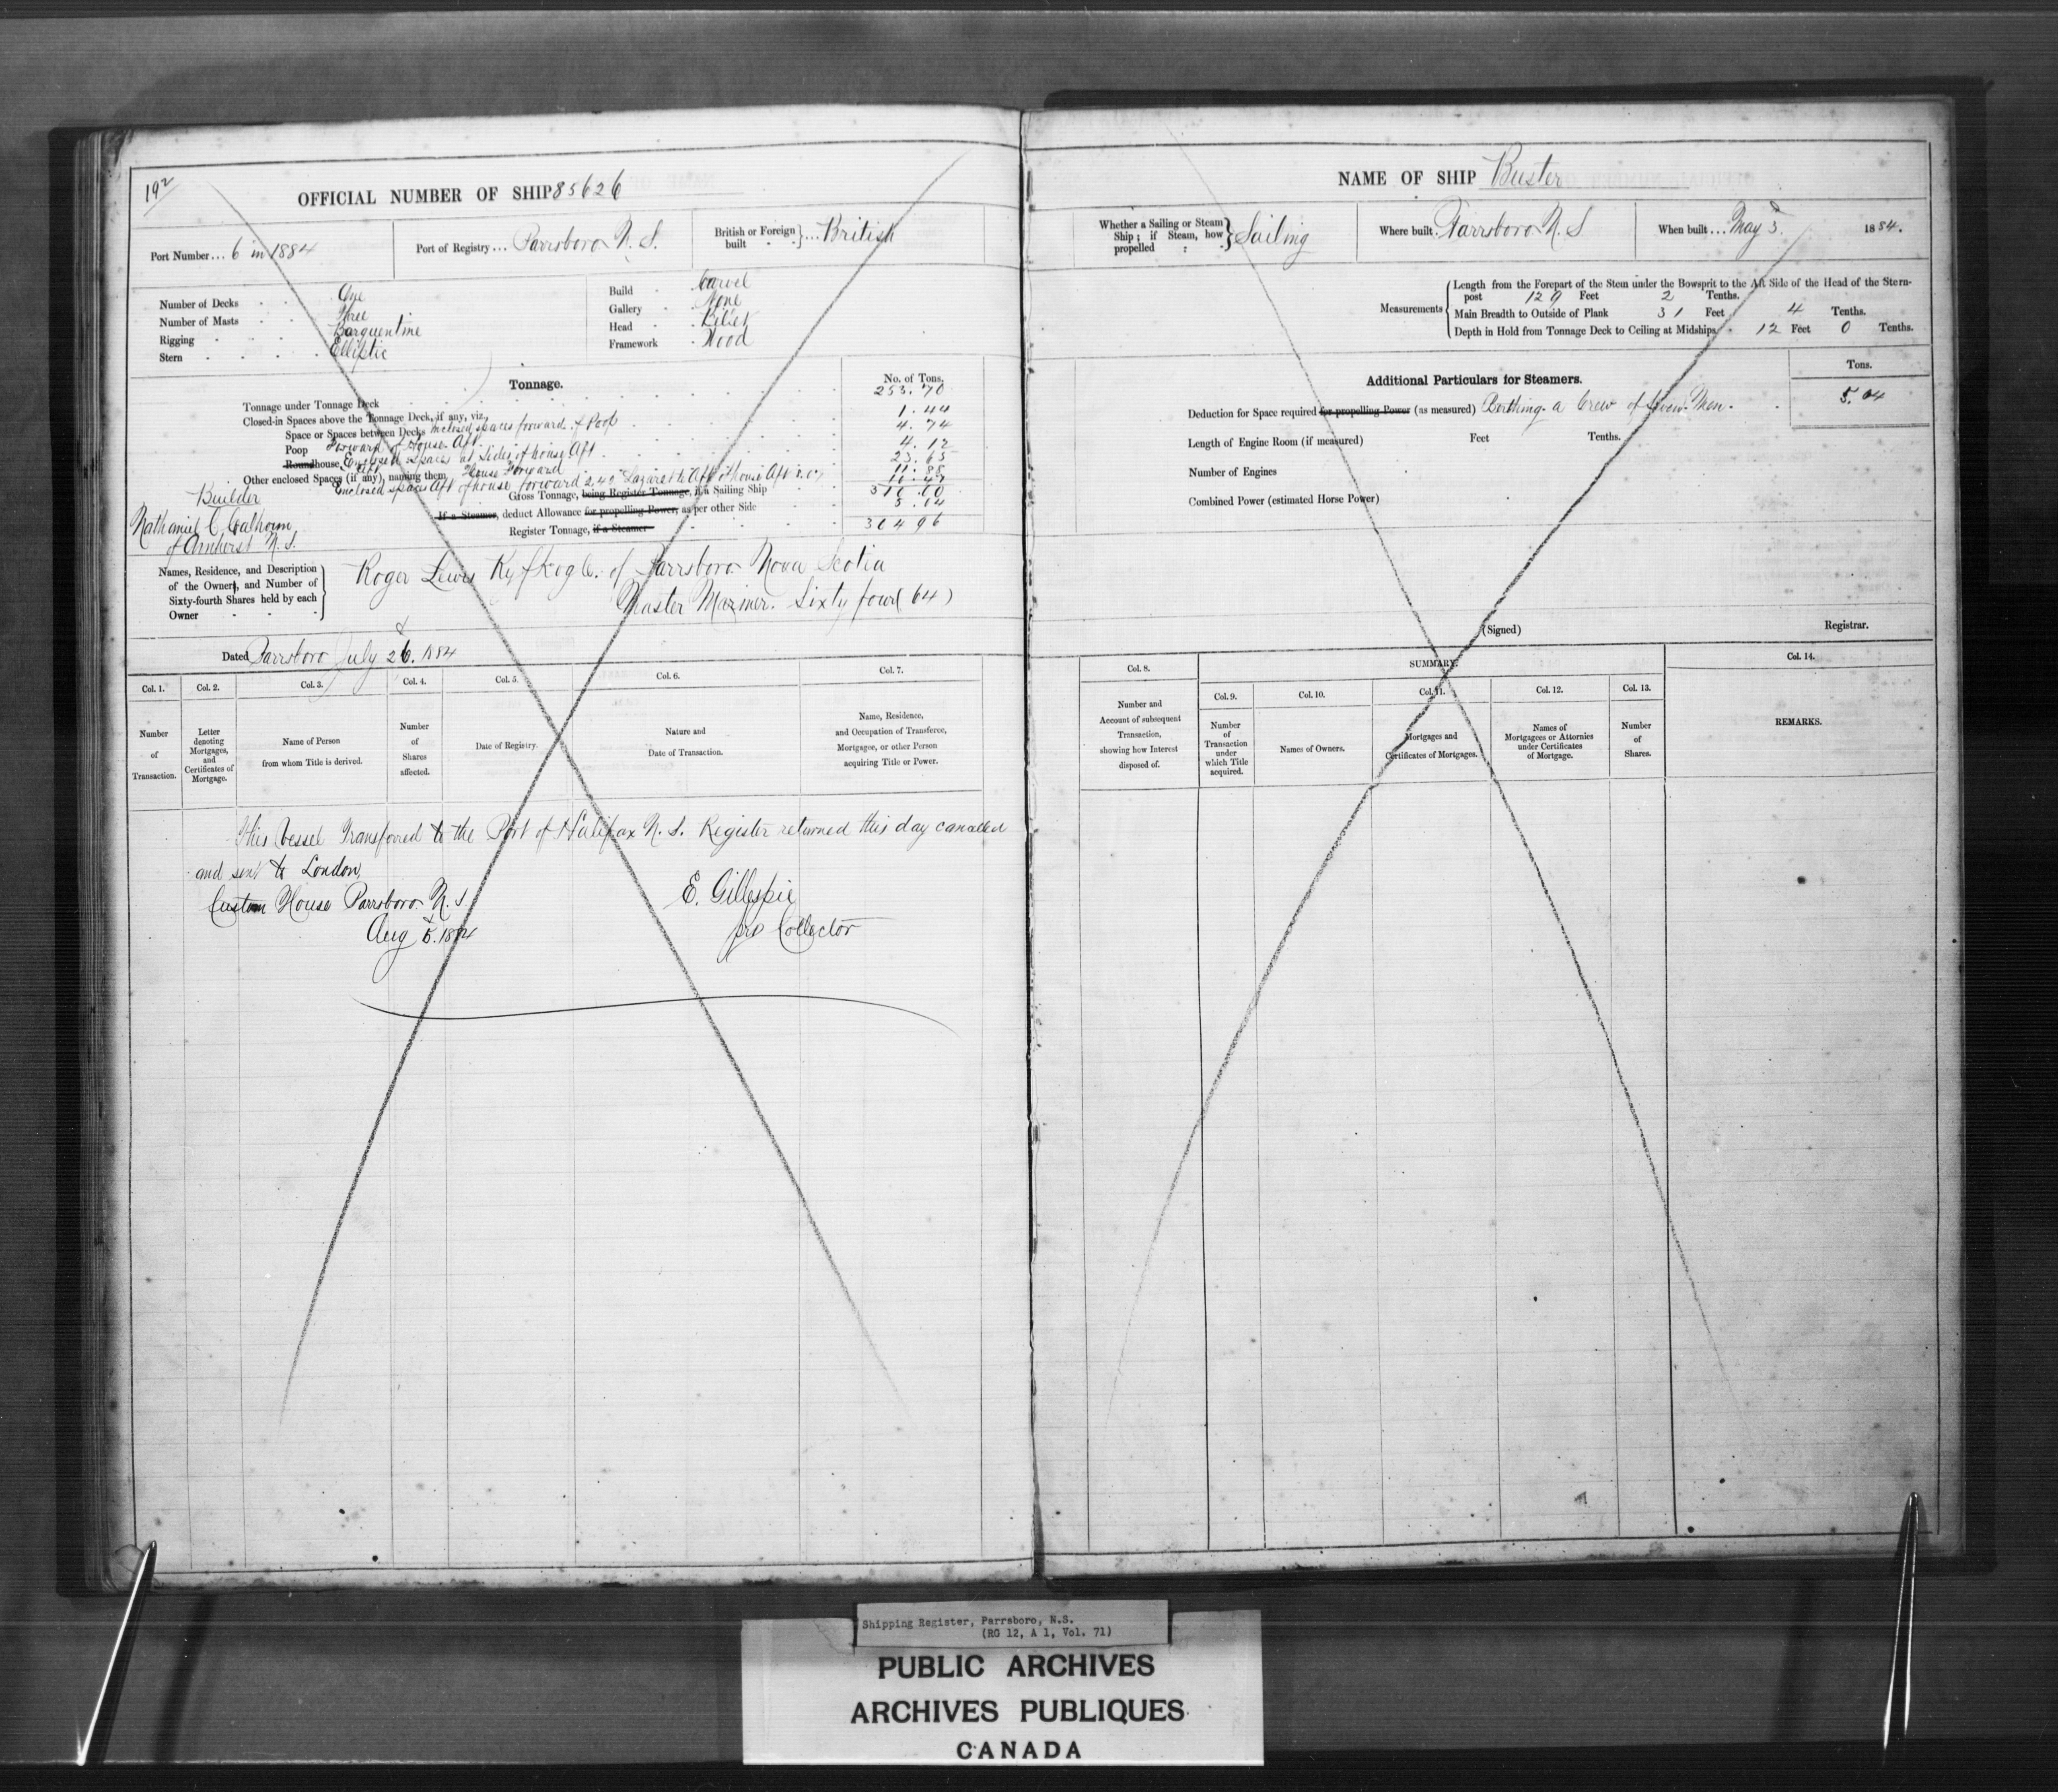 192
OFFICIAL NUMBER OF SHIP 85626
Port Number... 6 in 1884
Port of Registry... Parrsboro N. S.
British or Foreign built } ... British
Number of Decks One
Number of Masts Three
Rigging Barquentine
Stern Elliptic
Build Carvel
Gallery None
Head Billet
Framework Wood
Tonnage.
No. of Tons.
Tonnage under Tonnage Deck 253.70
Closed-in Spaces above the Tonnage Deck, if any, viz.
Space or Spaces between Decks inclosed spaces forward of Poop 1.44
Poop Forward of House Aft 4.74
Roundhouse, Enclosed spaces at Sides of house Aft 4.12
Other enclosed Spaces (if any), naming them House Forward
23.65
11.88
Enclosed spaces Aft of house forward 2.45 Lazareth Aft of House Aft
Gross Tonnage, being Register Tonnage, if a Sailing Ship 310.00
If a Steamer, deduct Allowance for propelling Power, as per other Side 5.04
Register Tonnage, if a Steamer 304 96
Builder
Nathaniel C Calhoun
of Amherst N. S.
Names, Residence, and Description
of the Owners, and Number of
Sixty-fourth Shares held by each
Owner
Roger Lewis of Parrsboro Nova Scotia
Master Mariner. Sixty four (64)
Dated Parrsboro July 26. 1884
Col. 1.
Col. 2.
Col. 3.
Col. 4.
Col. 5.
Col. 6.
Col. 7.
Number
of
Transaction.
Letter
denoting
Mortgages,
and
Certificates of
Mortgage.
Name of Person
from whom Title is derived.
Number
of
Shares
affected.
Date of Registry.
Nature and
Date of Transaction.
Name, Residence,
and Occupation of Transferee,
Mortgagee, or other Person
acquiring Title or Power.
This Vessel Transferred to the Port of Halifax N. S. Register returned this day cancelled
and sent to London,
Custom House Parrsboro N. S
Aug 5. 1884
E. Gillespie
pro Collector
NAME OF SHIP Buster
Whether a Sailing or Steam
Ship; if Steam, how
propelled } Sailing
Where built. Parrsboro N. S
When built ... May 3. 1884.
Measurements
Length from the Forepart of the Stem under the Bowsprit to the Aft Side of the Head of the Stern-
post 129 Feet 2 Tenths.
Main Breadth to Outside of Plank 31 Feet 4 Tenths.
Depth in Hold from Tonnage Deck to Ceiling at Midships. 12 Feet 0 Tenths.
Tons.
Additional Particulars for Steamers.
Deduction for Space required for propelling Power (as measured) Berthing a Crew of Seven Men. 5.04
Length of Engine Room (if measured) Feet Tenths.
Number of Engines
Combined Power (estimated Horse Power)
(Signed) Registrar.
Col. 8.
SUMMARY.
Col. 14.
Col. 9.
Col. 10.
Col. 11.
Col. 12.
Col. 13.
Number and
Account of subsequent
Transaction,
showing how Interest
disposed of.
Number
of
Transaction
under
which Title
acquired.
Names of Owners.
Mortgages and
Certificates of Mortgages.
Names of
Mortgagees or Attornies
under Certificates
of Mortgage.
Number
of
Shares.
REMARKS.
Shipping Register, Parrsboro, N.S.
(RG 12, A 1, Vol. 71)
PUBLIC ARCHIVES
ARCHIVES PUBLIQUES
CANADA